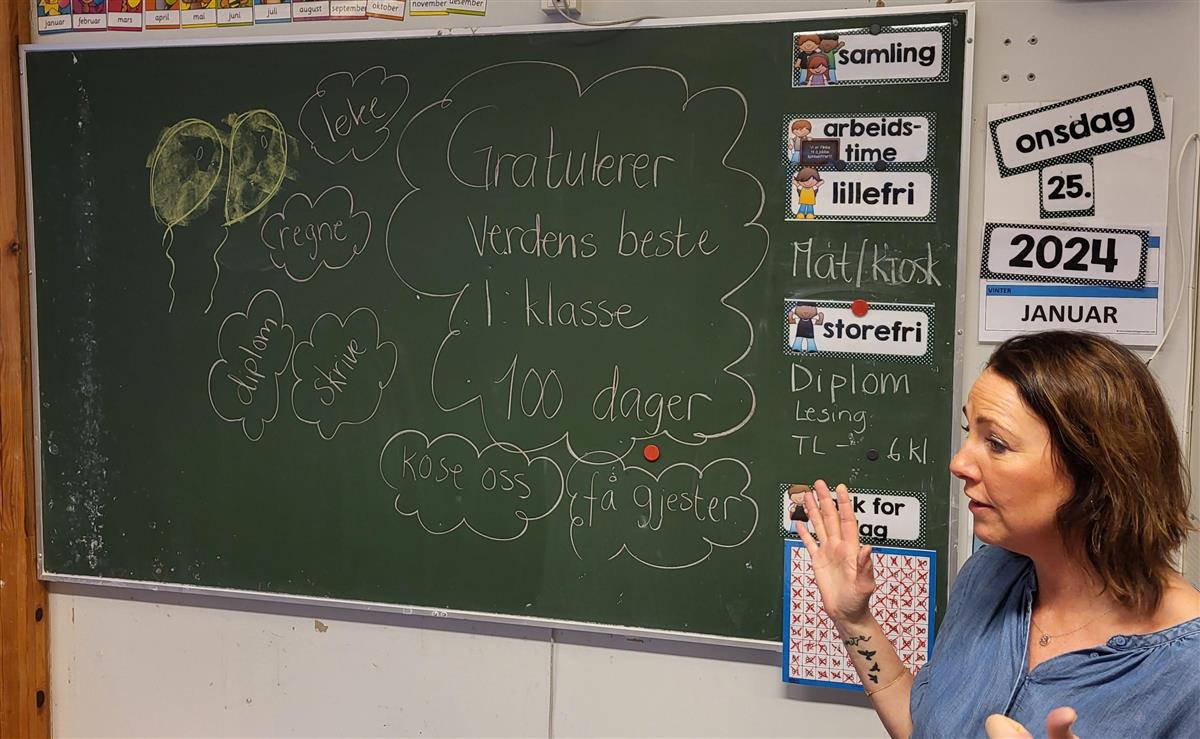 januar
februar
mars
april
mai
juni
juli
august
september
oktober
november
desember
leke
regne
diplom
skrive
Gratulerer
Verdens beste
1 klasse
100 dager
kose oss
få gjester
samling
arbeids-
time
lillefri
Mat/kiosk
storefri
Diplom
Lesing
TL - 6 kl.
for
onsdag
25.
2024
VINTER
JANUAR